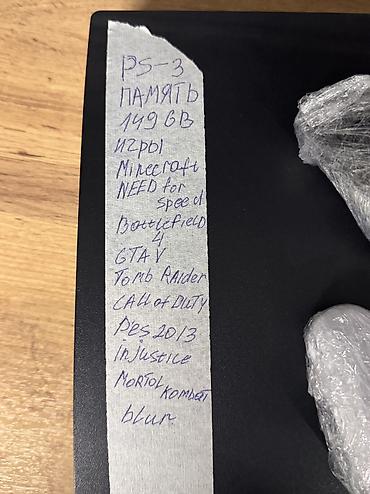 PS-3
ПАМЯТЬ
149 GB
игры
Minecraft
NEED for
speed
Battlefield
4
GTA V
Tomb RAider
CALL of DUTY
Pes 2013
injustice
MORTOL
KOMBAT
blur